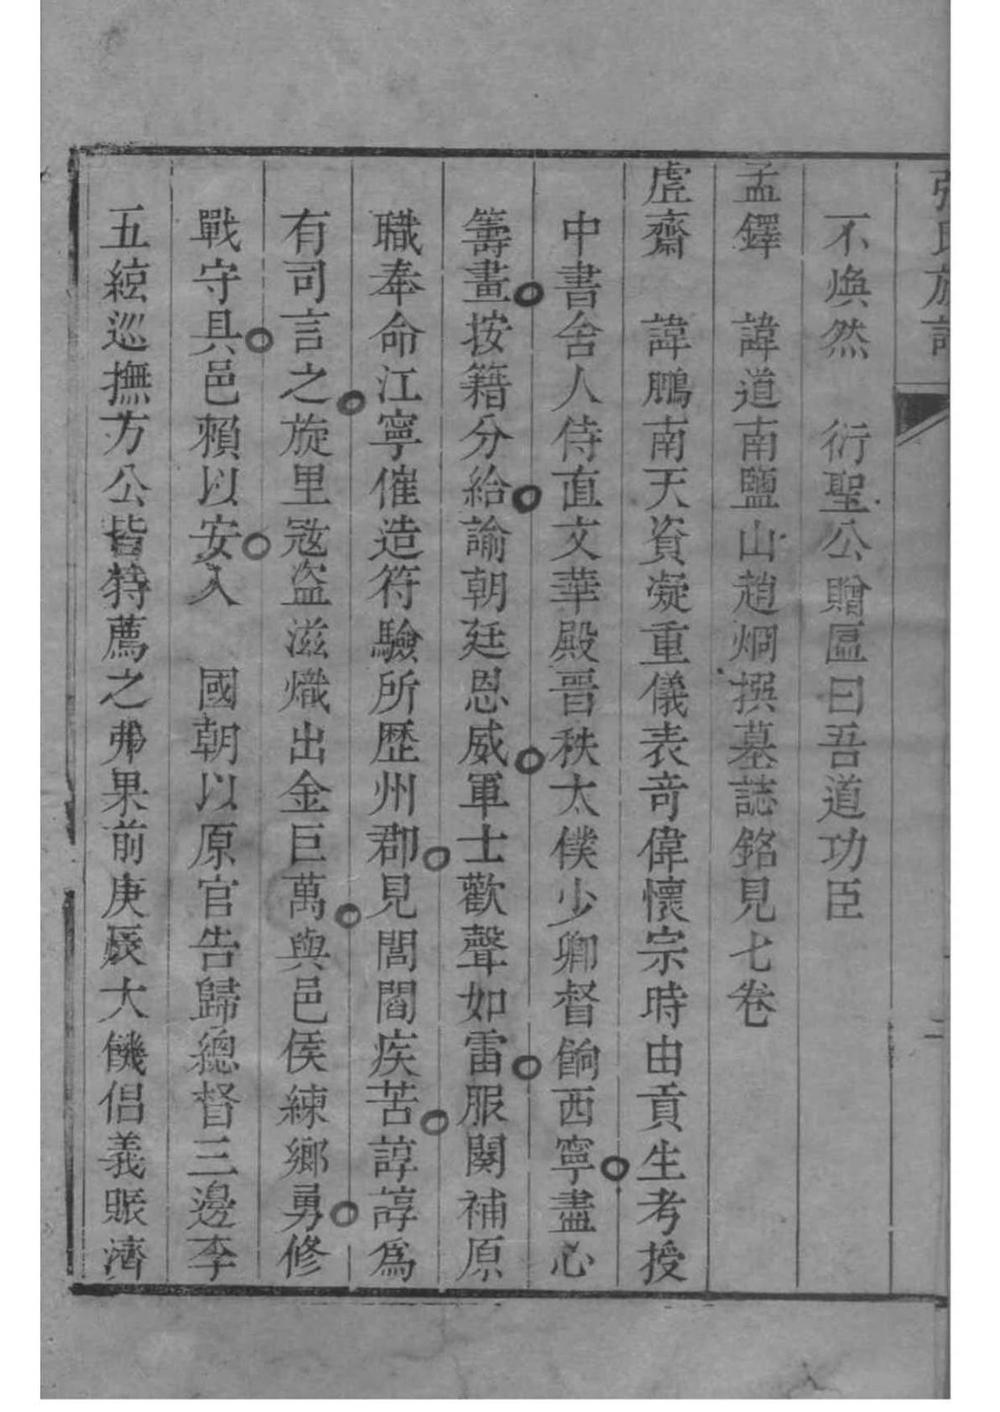 張氏族譜
不煥然　衍聖公贈匾曰吾道功臣
孟鐸　諱道南鹽山趙烱撰墓誌銘見七卷
虎齋　諱鵬南天資凝重儀表竒偉懷宗時由貢生考授
中書舍人侍直文華殿晋秩太僕少卿督餉西寧盡心
籌畫按籍分給諭朝廷恩威軍士歡聲如雷服闋補原
職奉命江寧催造符驗所歷州郡見閭閻疾苦諄諄爲
有司言之旋里𡨥盜滋熾出金巨萬與邑侯練鄉勇修
戰守具邑賴以安入　國朝以原官告歸總督三邊李
五綋巡撫方公皆特薦之弗果前庚辰大饑倡義賑濟